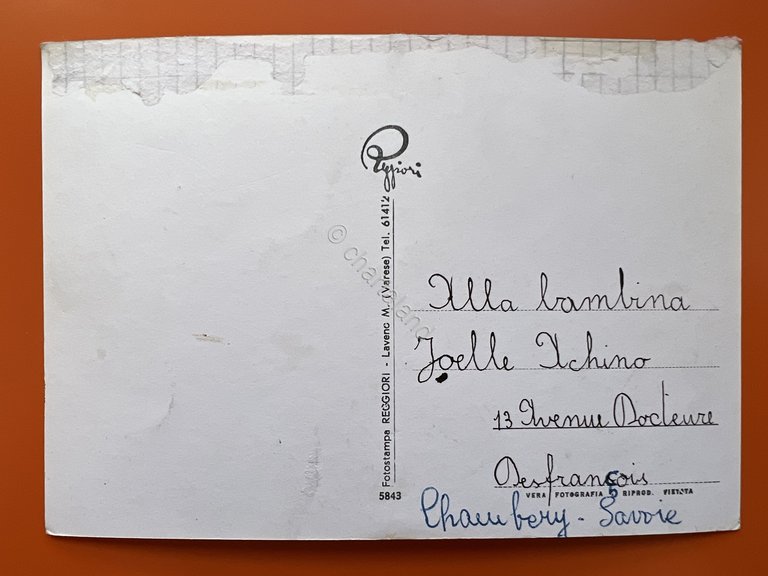 Reggiori
Fotostampa REGGIORI - Laveno M. (Varese) Tel. 61412
© chartaland
Alla bambina
Joelle Achino
13 Avenue Docteure
Desfrançois
5843
VERA FOTOGRAFIA RIPROD. VIETATA
Chambery - Savoie